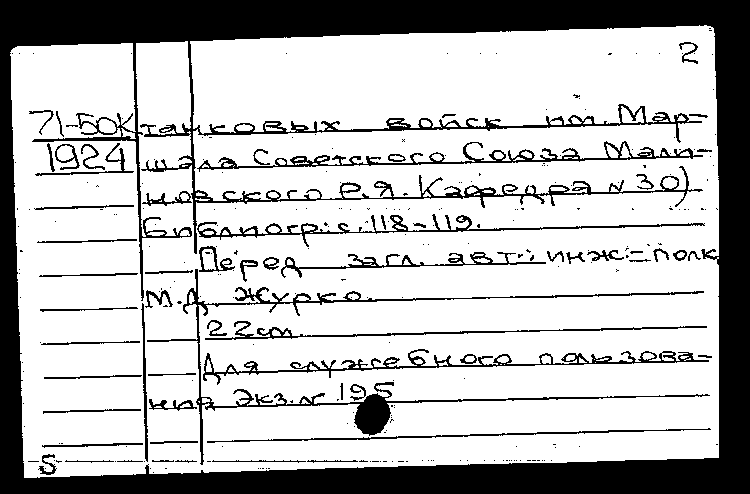 2
71-50К танковых войск им. Мар=
1924 шала Советского Союза Мали-
новского Р.Я. Кафедра № 30)
Библиогр: с. 118-119.
Перед загл. авт.: инж=полк
М.Д. Журко.
22 см.
Для служебного пользова=
ния Экз. № 195
S